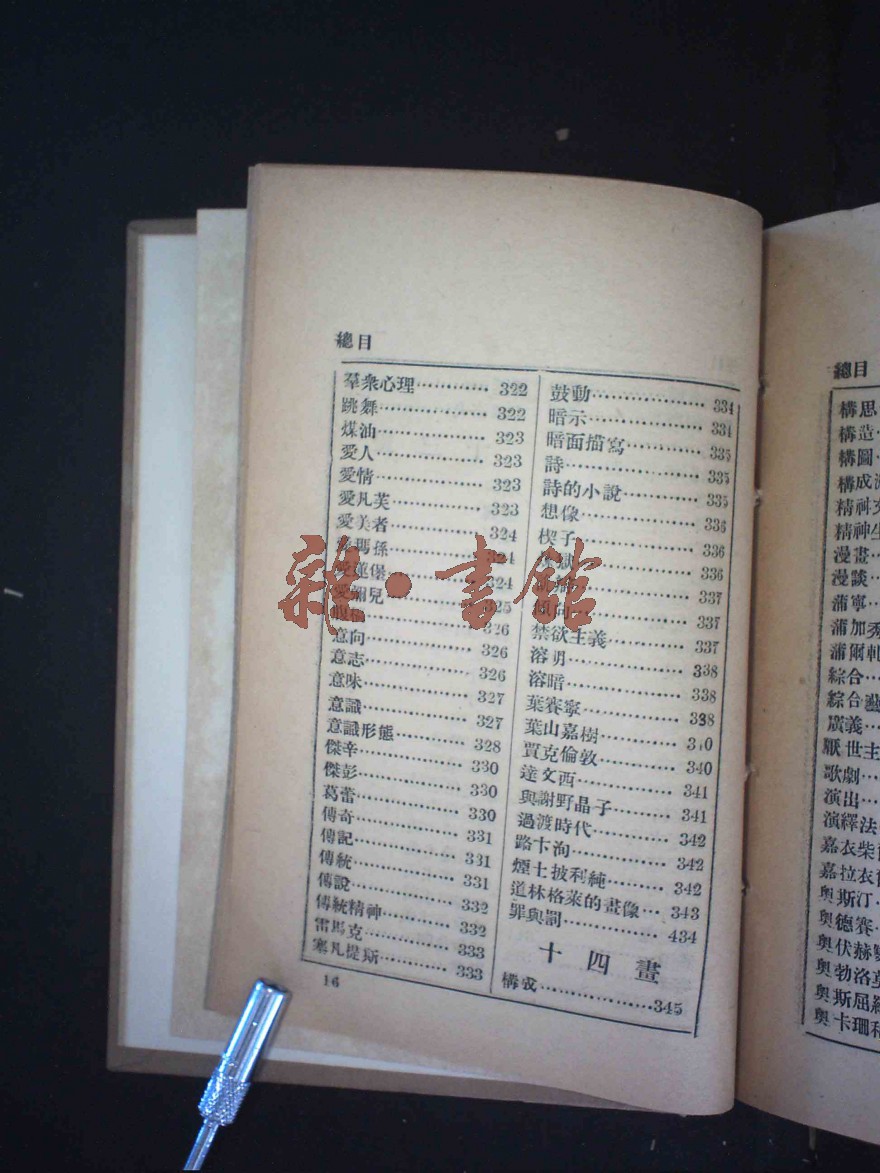 總目
羣衆心理············ 322
跳舞·················· 322
煤油·················· 323
愛人·················· 323
愛情·················· 323
愛凡芙··············· 323
愛美者··············· 324
瑪孫·················· 324
愛蓮堡··············· 324
愛爾兒··············· 325
326
意向·················· 326
意志·················· 326
意味·················· 327
意識·················· 327
意識形態············ 328
傑辛·················· 330
傑彭·················· 330
葛蕾·················· 330
傳奇·················· 331
傳記·················· 331
傳統·················· 331
傳說·················· 332
傳統精神············ 332
雷馬克··············· 333
塞凡提斯············ 333
16
鼓動·················· 334
暗示·················· 334
暗面描寫············ 335
詩····················· 335
詩的小說············ 335
想像·················· 336
楔子·················· 336
336
337
傾向·················· 337
禁欲主義············ 337
溶明·················· 338
溶暗·················· 338
葉賽寧··············· 338
葉山嘉樹············ 340
賈克倫敦············ 340
達文西··············· 341
與謝野晶子········· 341
過渡時代············ 342
路卞洵··············· 342
煙士披利純········· 342
道林格萊的畫像··· 343
罪與罰··············· 434
十四畫
構成·················· 345
總目
構思
構造
構圖
構成
精神
精神生
漫畫
漫談
蒲寧
蒲加秀
蒲爾
綜合
綜合藝
廣義
厭世主
歌劇
演出
演繹法
嘉衣
嘉拉衣
奧斯汀
奧德賽
奧伏赫
奧勃洛
奧斯屈
奧卡珊
雜·書館